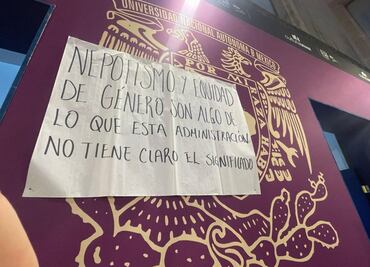 UNIVERSIDAD NACIONAL AUTÓNOMA D MÉXICO
POR MI
NEPOTISMO Y EQUIDAD
DE GÉNERO SON ALGO DE
LO QUE ESTA ADMINISTRACIÓN
NO TIENE CLARO EL SIGNIFICADO